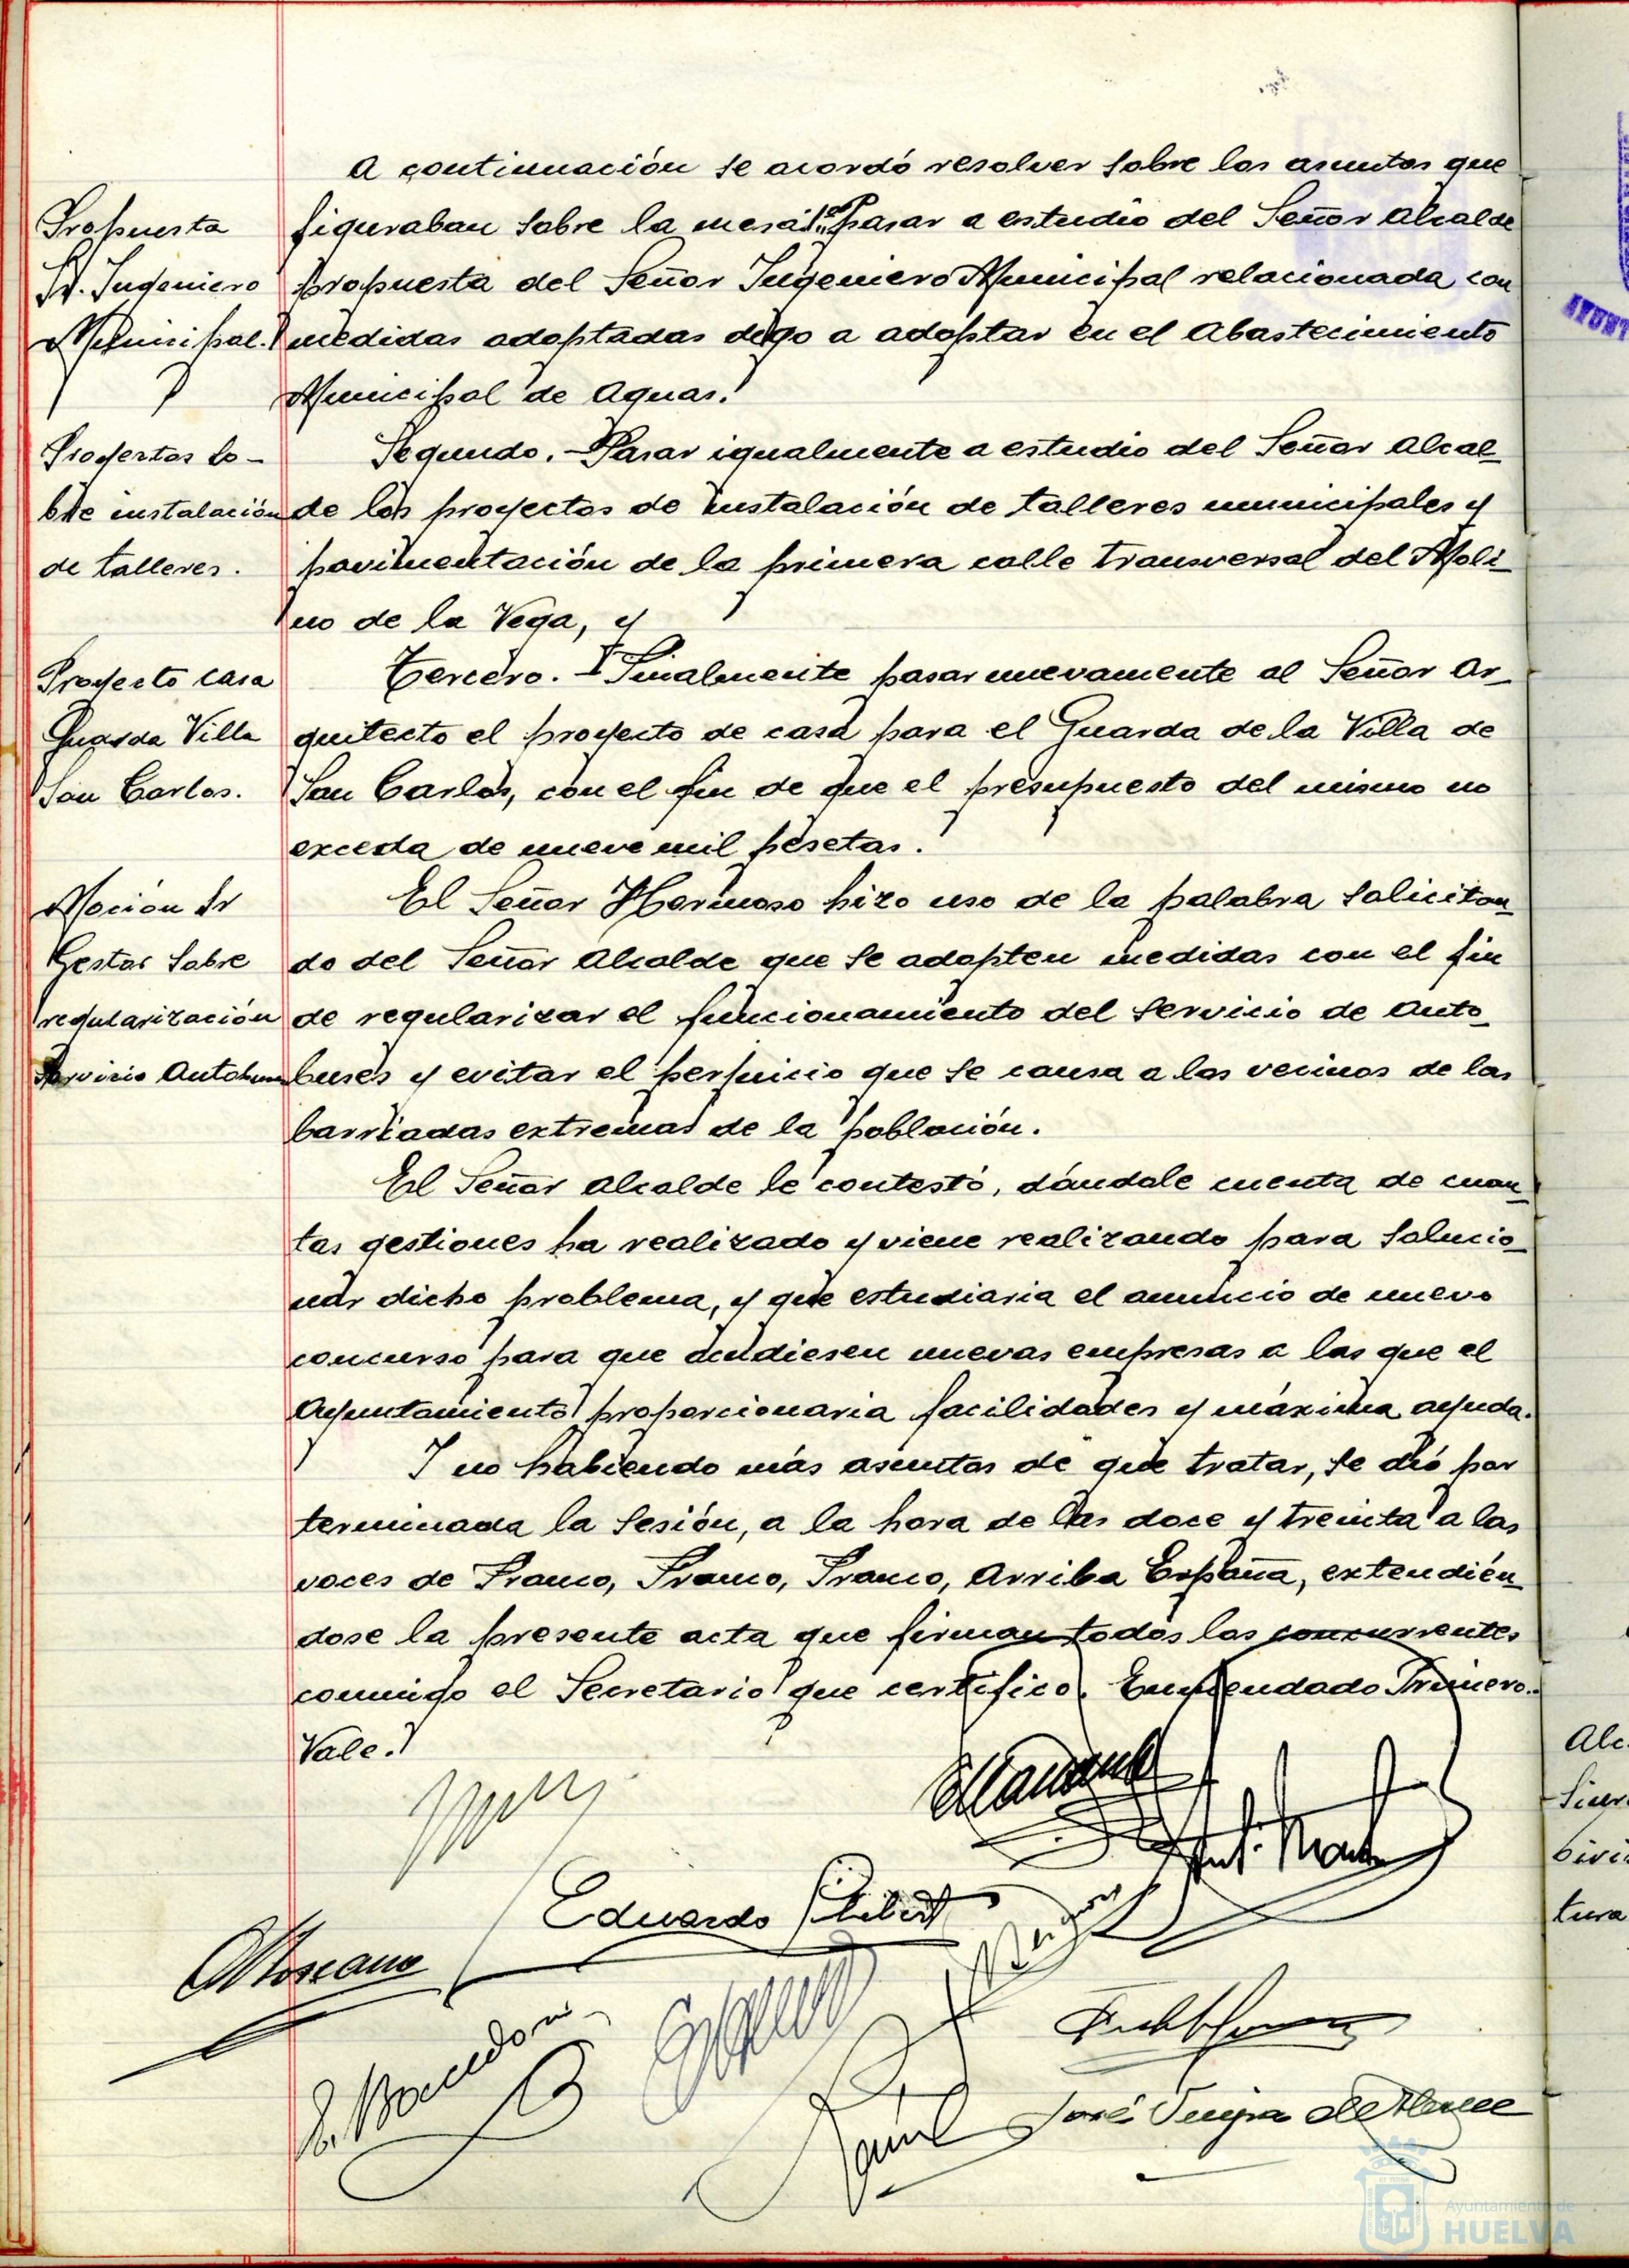 A continuación se acordó resolver sobre los asuntos que
Propuesta
Sr. Ingeniero
Municipal.
figuraban sobre la mesa: 1º Pasar a estudio del Señor Alcalde
propuesta del Señor Ingeniero Municipal relacionada con
medidas adoptadas digo a adoptar en el Abastecimiento
Municipal de Aguas.
Proyectos so-
bre instalación
de talleres.
Segundo.- Pasar igualmente a estudio del Señor Alcal-
de los proyectos de instalación de talleres municipales y
pavimentación de la primera calle transversal del Moli-
no de la Vega, y
Proyecto casa
Guarda Villa
San Carlos.
Tercero.- Finalmente pasar nuevamente al Señor Ar-
quitecto el proyecto de casa para el Guarda de la Villa de
San Carlos, con el fin de que el presupuesto del mismo no
exceda de nueve mil pesetas.
Moción Sr
Gestor sobre
regularización
Servicio Autobuses
El Señor Hermoso hizo uso de la palabra solicitan-
do del Señor Alcalde que se adopten medidas con el fin
de regularizar el funcionamiento del servicio de Auto-
buses y evitar el perjuicio que se causa a los vecinos de las
barriadas extremas de la población.
El Señor Alcalde le contestó, dándole cuenta de cuan-
tas gestiones ha realizado y viene realizando para solucio-
nar dicho problema, y que estudiaria el anuncio de nuevo
concurso para que acudiesen nuevas empresas a las que el
Ayuntamiento proporcionaria facilidades y máxima ayuda.
Y no habiendo más asuntos de que tratar, se dió por
terminada la sesión, a la hora de las doce y treinta a las
voces de Franco, Franco, Franco, Arriba España, extendién-
dose la presente acta que firman todos los concurrentes
conmigo el Secretario que certifico. Enmendado Primero.-
Vale.
Eduardo
Ayuntamiento de
HUELVA
Alc